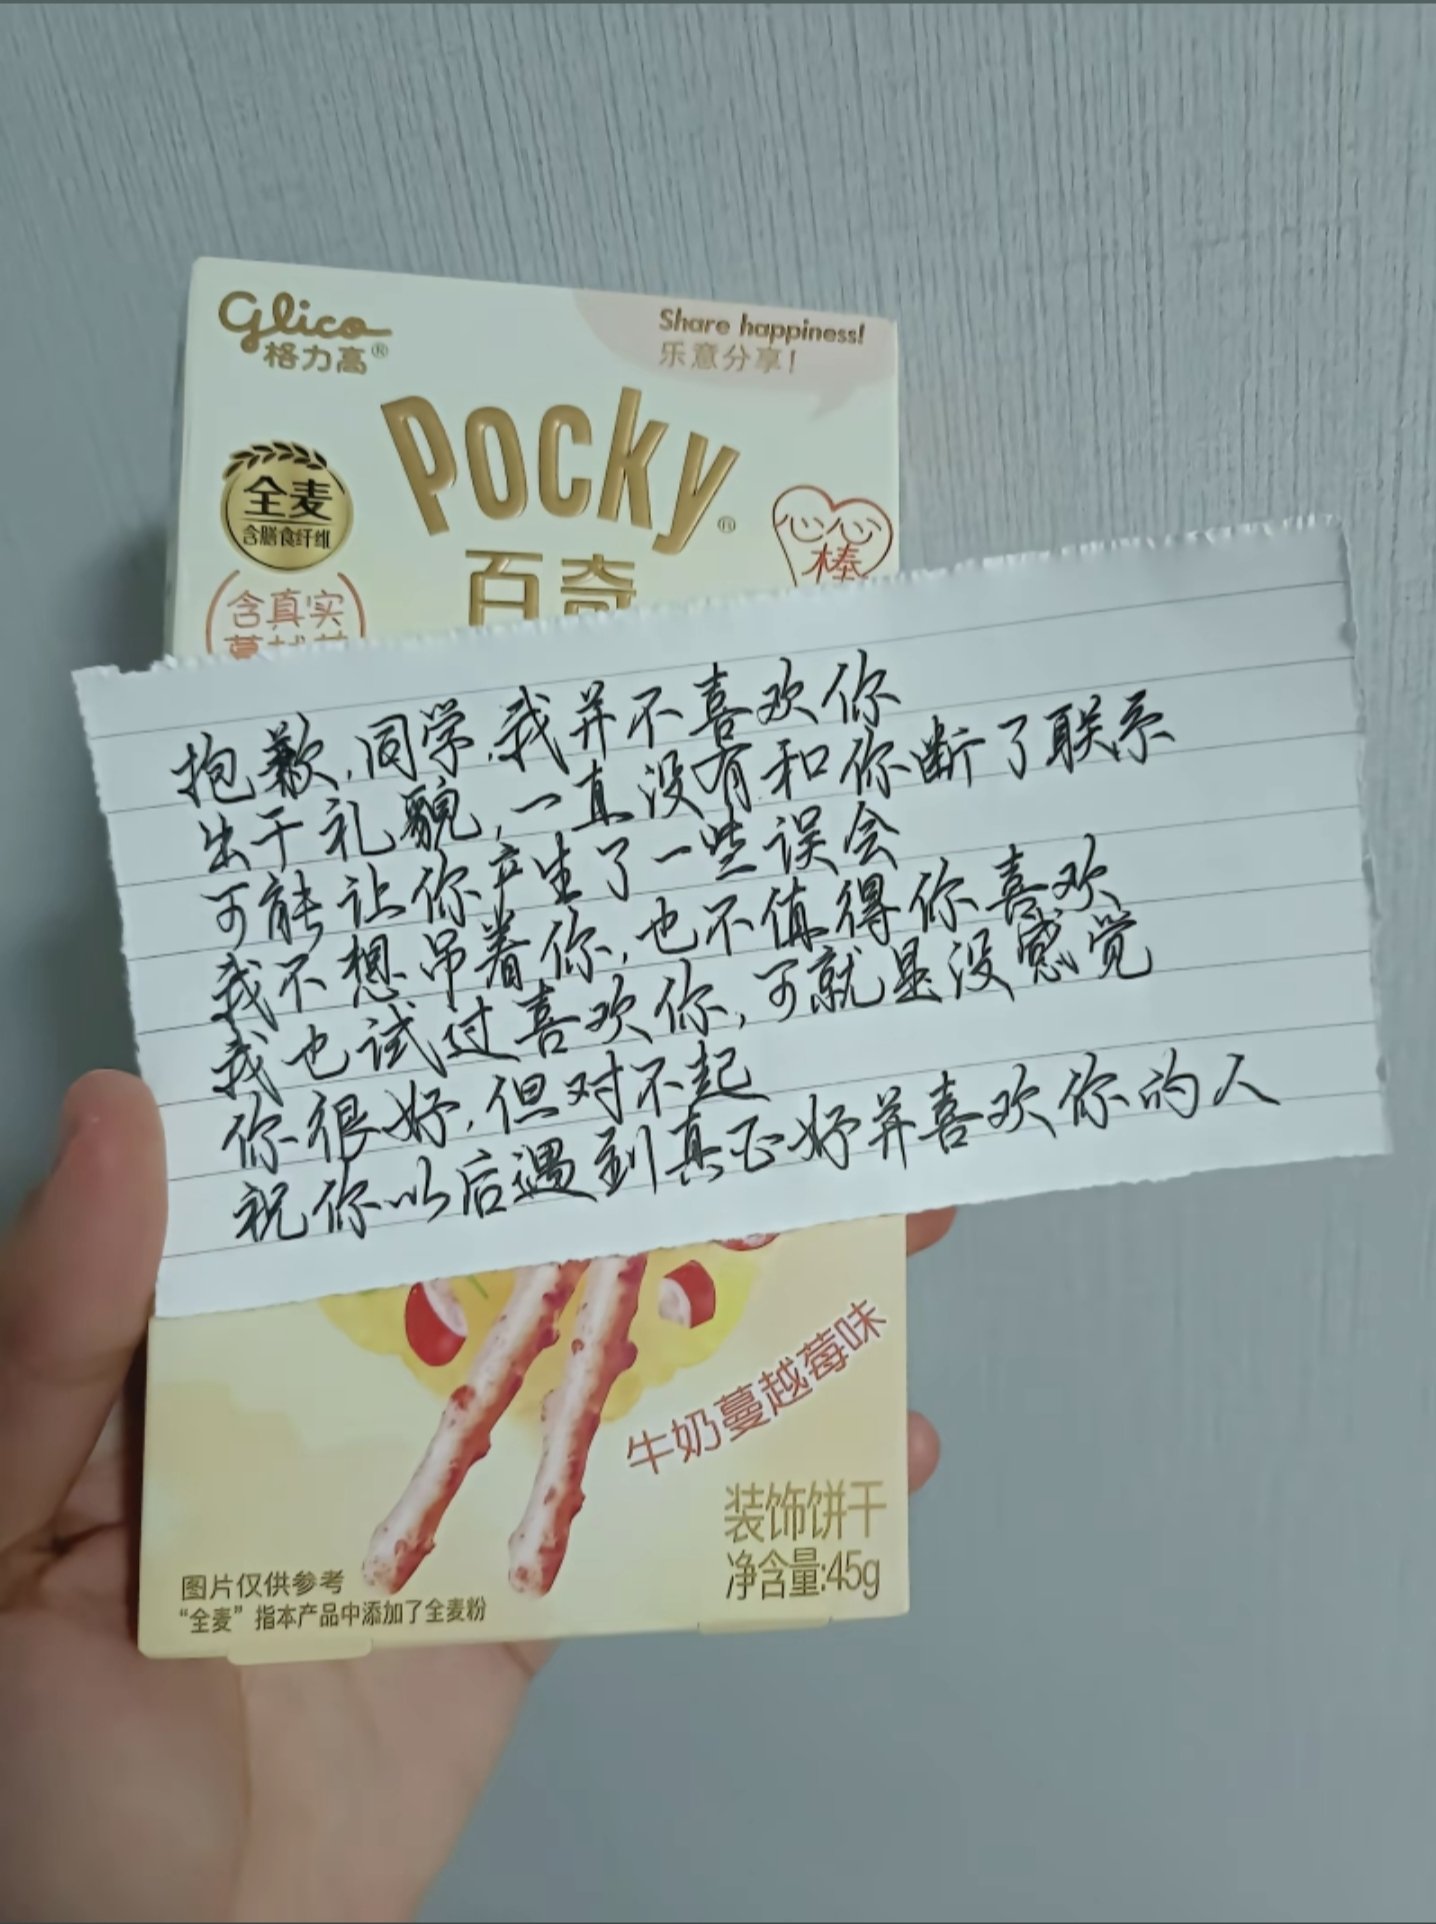 Glico
格力高®
Share happiness!
乐意分享！
Pocky®
百奇
全麦
含膳食纤维
心心
棒
含真实
抱歉,同学,我并不喜欢你
出于礼貌,一直没有和你断了联系
可能让你产生了一些误会
我不想吊着你,也不值得你喜欢
我也试过喜欢你,可就是没感觉
你很好,但对不起
祝你以后遇到真正好并喜欢你的人
牛奶蔓越莓味
装饰饼干
净含量:45g
图片仅供参考
“全麦”指本产品中添加了全麦粉